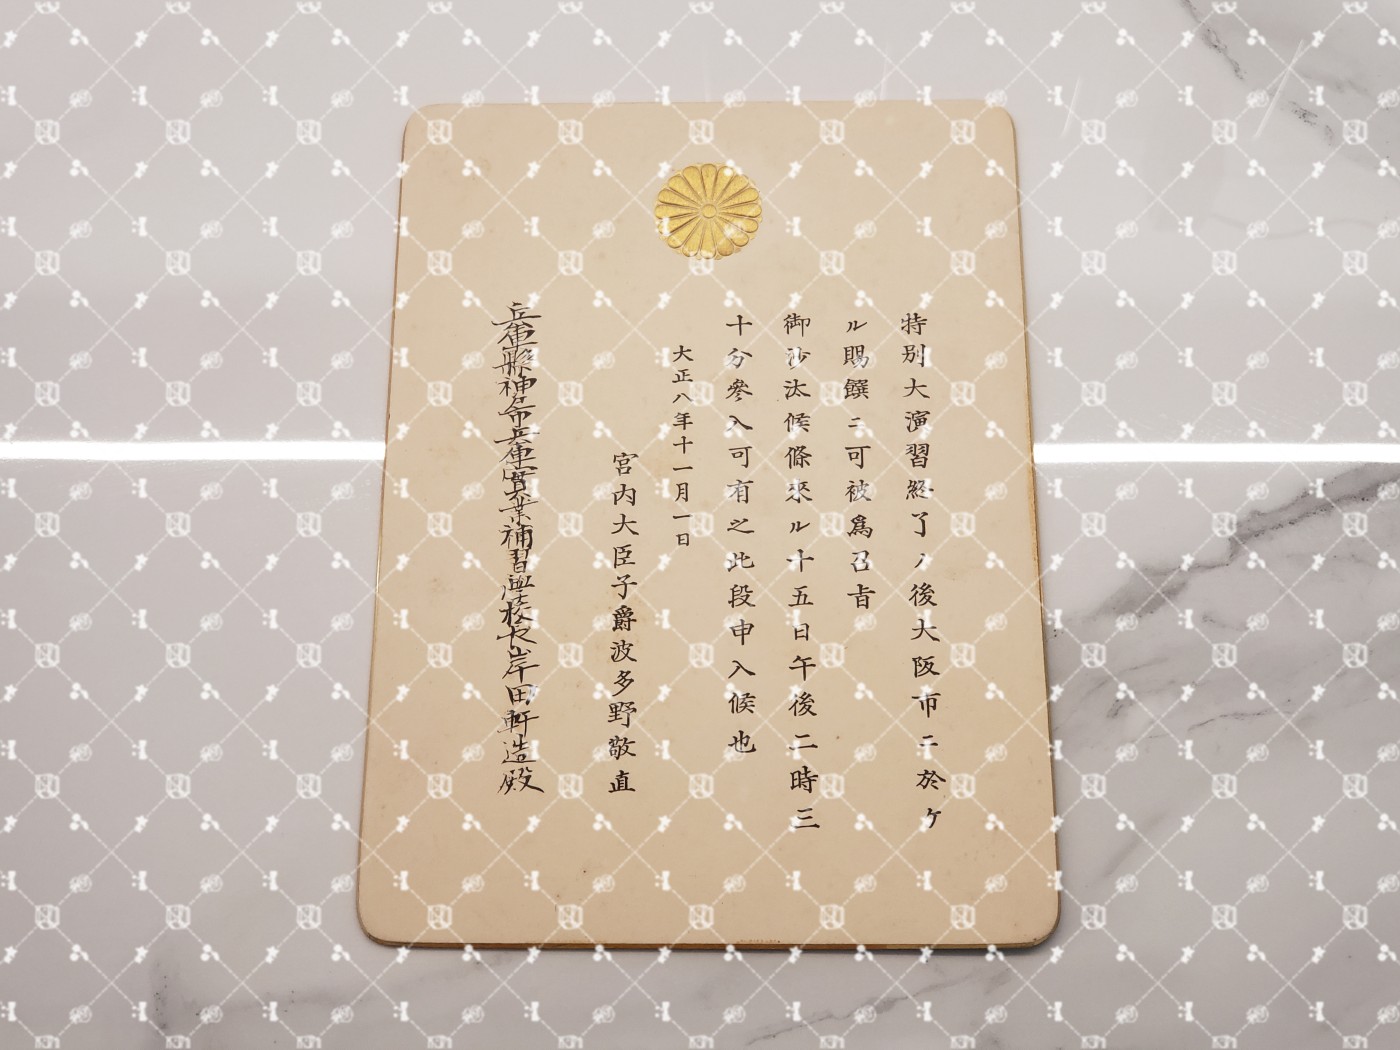 特別大演習終了ノ後大阪市ニ於ケ
ル賜饌ニ可被爲召旨
御沙汰候條來ル十五日午後二時三
十分參入可有之此段申入候也
大正八年十一月一日
宮内大臣子爵波多野敬直
兵庫縣神戸市兵庫實業補習學校長岸田軒造殿